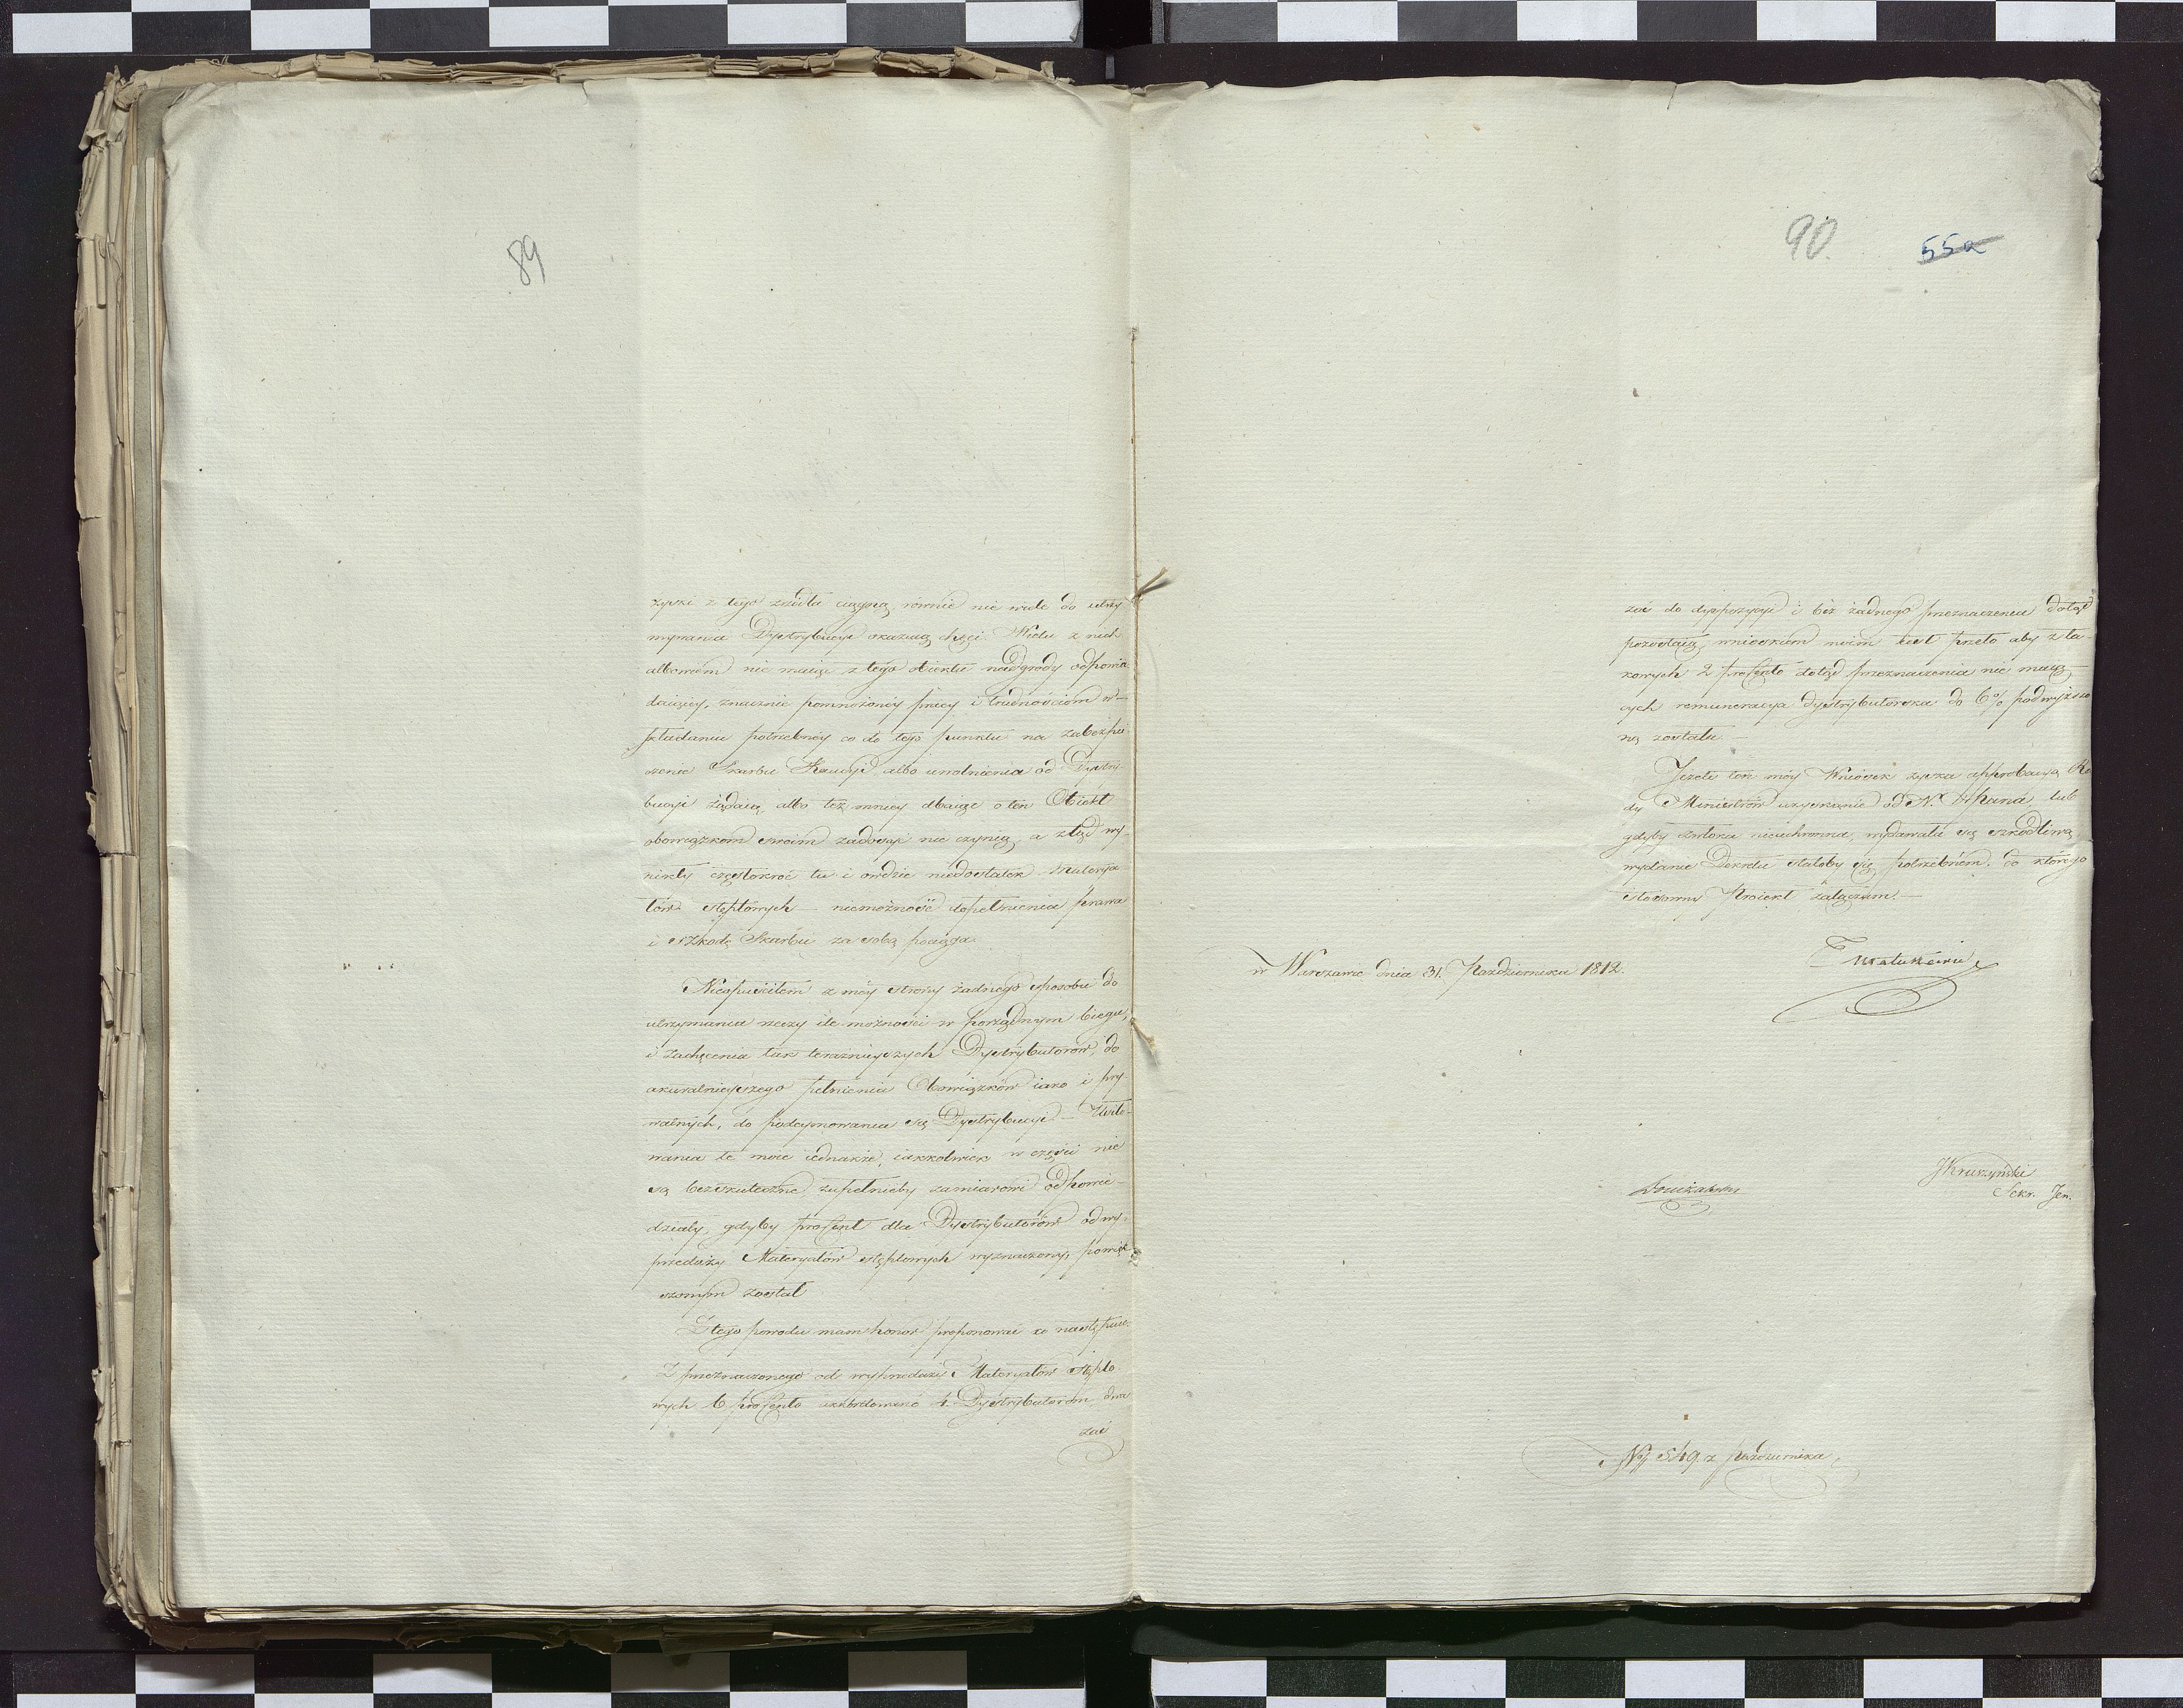 89
zyski z tego źródła ciągną, równie nie wiele do utrzy
mywania Dystrybucyi okazuią chęci. Wielu z nich
albowiem nie maiąc z tego obiektu nadgrody odpowia
daiącéy, znacznie pomnożonéy pracy i trudnościom w
składaniu potrzebnéy co do tego punktu na zabezpie
czenie Skarbu Kaucyi albo uwolnienia od Dystry-
bucyi żądaią, albo też mniey dbaiąc o ten Obiekt
obowiązkom swoim zadosyć nie czynią, a ztąd wy-
nikły częstokroć tu i owdzie niedostatek Materya-
łów stęplowych niemożność dopełnienia prawa
i szkodę Skarbu za sobą pociąga.
Nieopuściłem z méy strony żadnego sposobu do
utrzymania rzeczy ile możności w porządnym biegu,
i zachęcenia tak teraźnieyszych Dystrybutorów, do
akuratnieyszego pełnienia Obowiązków iako i pry-
watnych, do podeymowania się Dystrybucyi – Usiło-
wania te moie iednakże, iakkolwiek w części nie
są bezskuteczne, zupełnieby zamiarowi odpowie-
działy, gdyby procent dla Dystrybutorów od wy-
przedaży Materyałów stęplowych wyznaczony, powięk
szonym został
Z tego powodu mam honor proponować co następuie.
Z przeznaczonego od wyprzedaży Materyałów stęplo
wych 6 procento 4. Dystrybutorom, dwa
zaś
90.
55a
zaś do dyspozycyi i bez żadnego przeznaczenia dotąd
pozostaią, wnioskiem moim iest przeto aby z ta-
kowych 2 procento dotąd przeznaczenia nie maią
cych remuneracya dystrybutorska do 6% podwyższo
ną została –
Jeżeli ten móy Wniosek zyska approbacyą Ra
dy Ministrów uzyskanie od N. Pana lub
gdyby zwłoka nieuchronna, wydawała się szkodliwą
wydanie Dekretu stałoby się potrzebném, do którego
stosowny Proiekt załączam. –
w Warszawie dnia 31. Października 1812.
T Matuszewic
JKruszyński
Sekr. Jen.
N 549. z października